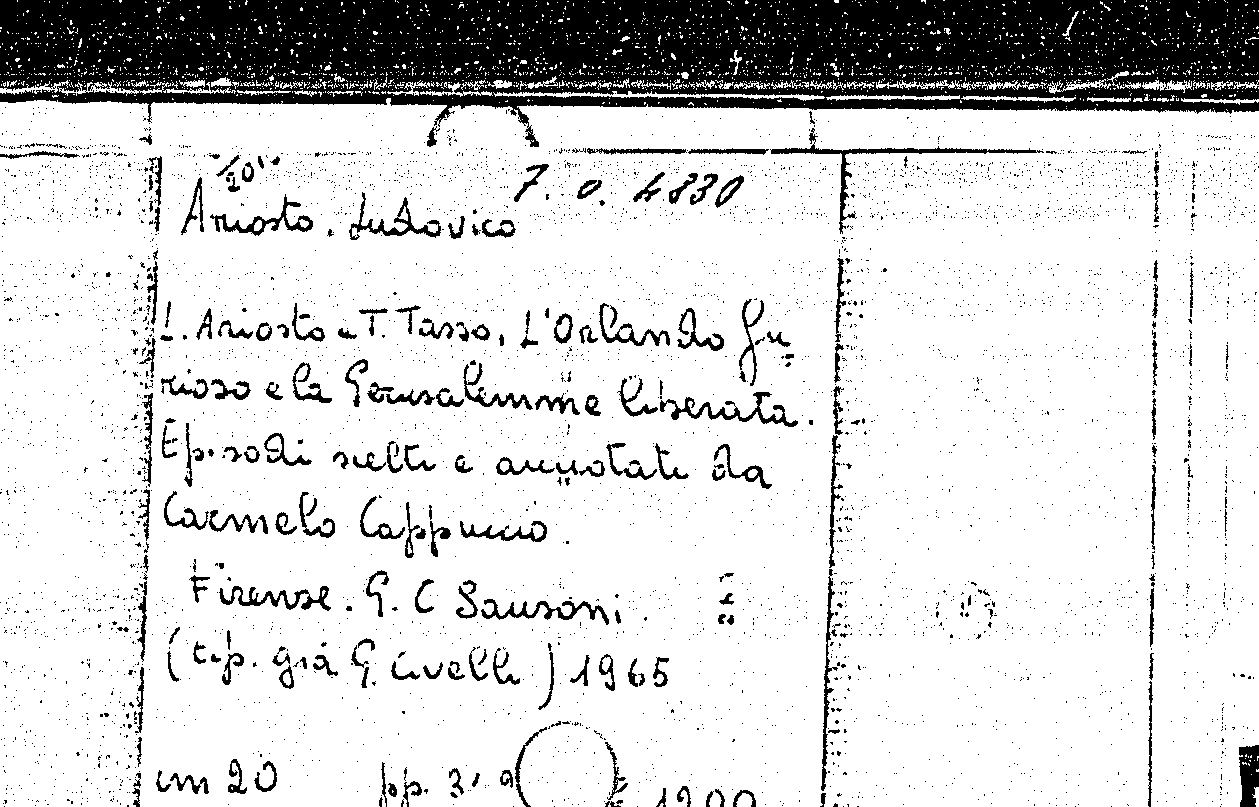 7. o. 4830
Ariosto, Ludovico
L. Ariosto e T. Tasso, L'Orlando Fu=
rioso e la Gerusalemme liberata.
Episodi scelti e annotati da
Carmelo Cappuccio.
Firenze. G. C Sansoni.
(tip. già G. Civelli) 1965
cm 20 pp.